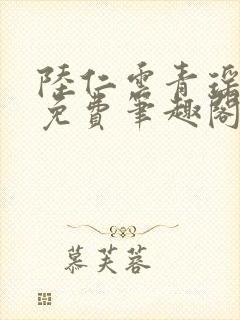 陸仁雲青瑶
免費筆趣閣
慕芙蓉